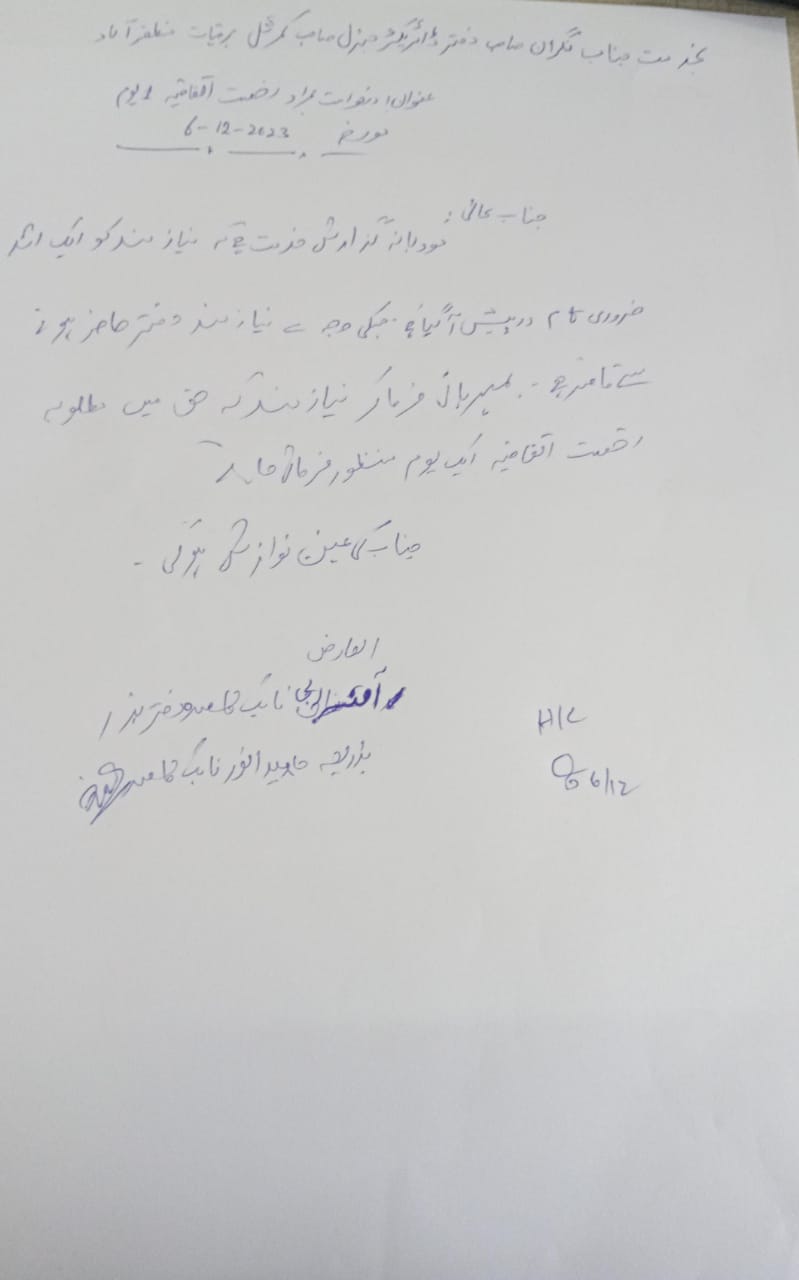 بخدمت جناب نگران صاحب دفتر ڈائریکٹر جنرل صاحب کمرشل برقیات مظفرآباد
عنوان: درخواست بمراد رخصت اتفاقیہ 1 یوم
مورخہ 6-12-2023
جناب عالی:
مودبانہ گزارش خدمت ہے کہ نیازمند کو ایک اشد
ضروری کام درپیش آگیا ہے۔ جسکی وجہ سے نیازمند دفتر حاضر ہونے
سے قاصر ہے۔ مہربانی فرما کر نیازمند کے حق میں مطلوبہ
رخصت اتفاقیہ ایک یوم منظور فرمائی جائے
جناب کی عین نوازش ہوگی۔
العارض
نائب قاصد دفتر ہذا
بذریعہ جاوید انور نائب قاصد
6/12